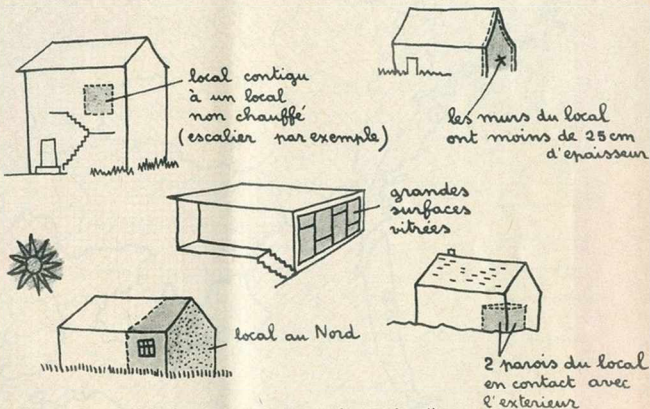 local contigu
à un local
non chauffé
(escalier par exemple)
les murs du local
ont moins de 25cm
d'epaisseur
grandes
surfaces
vitrées
local au Nord
2 parois du local
en contact avec
l'exterieur